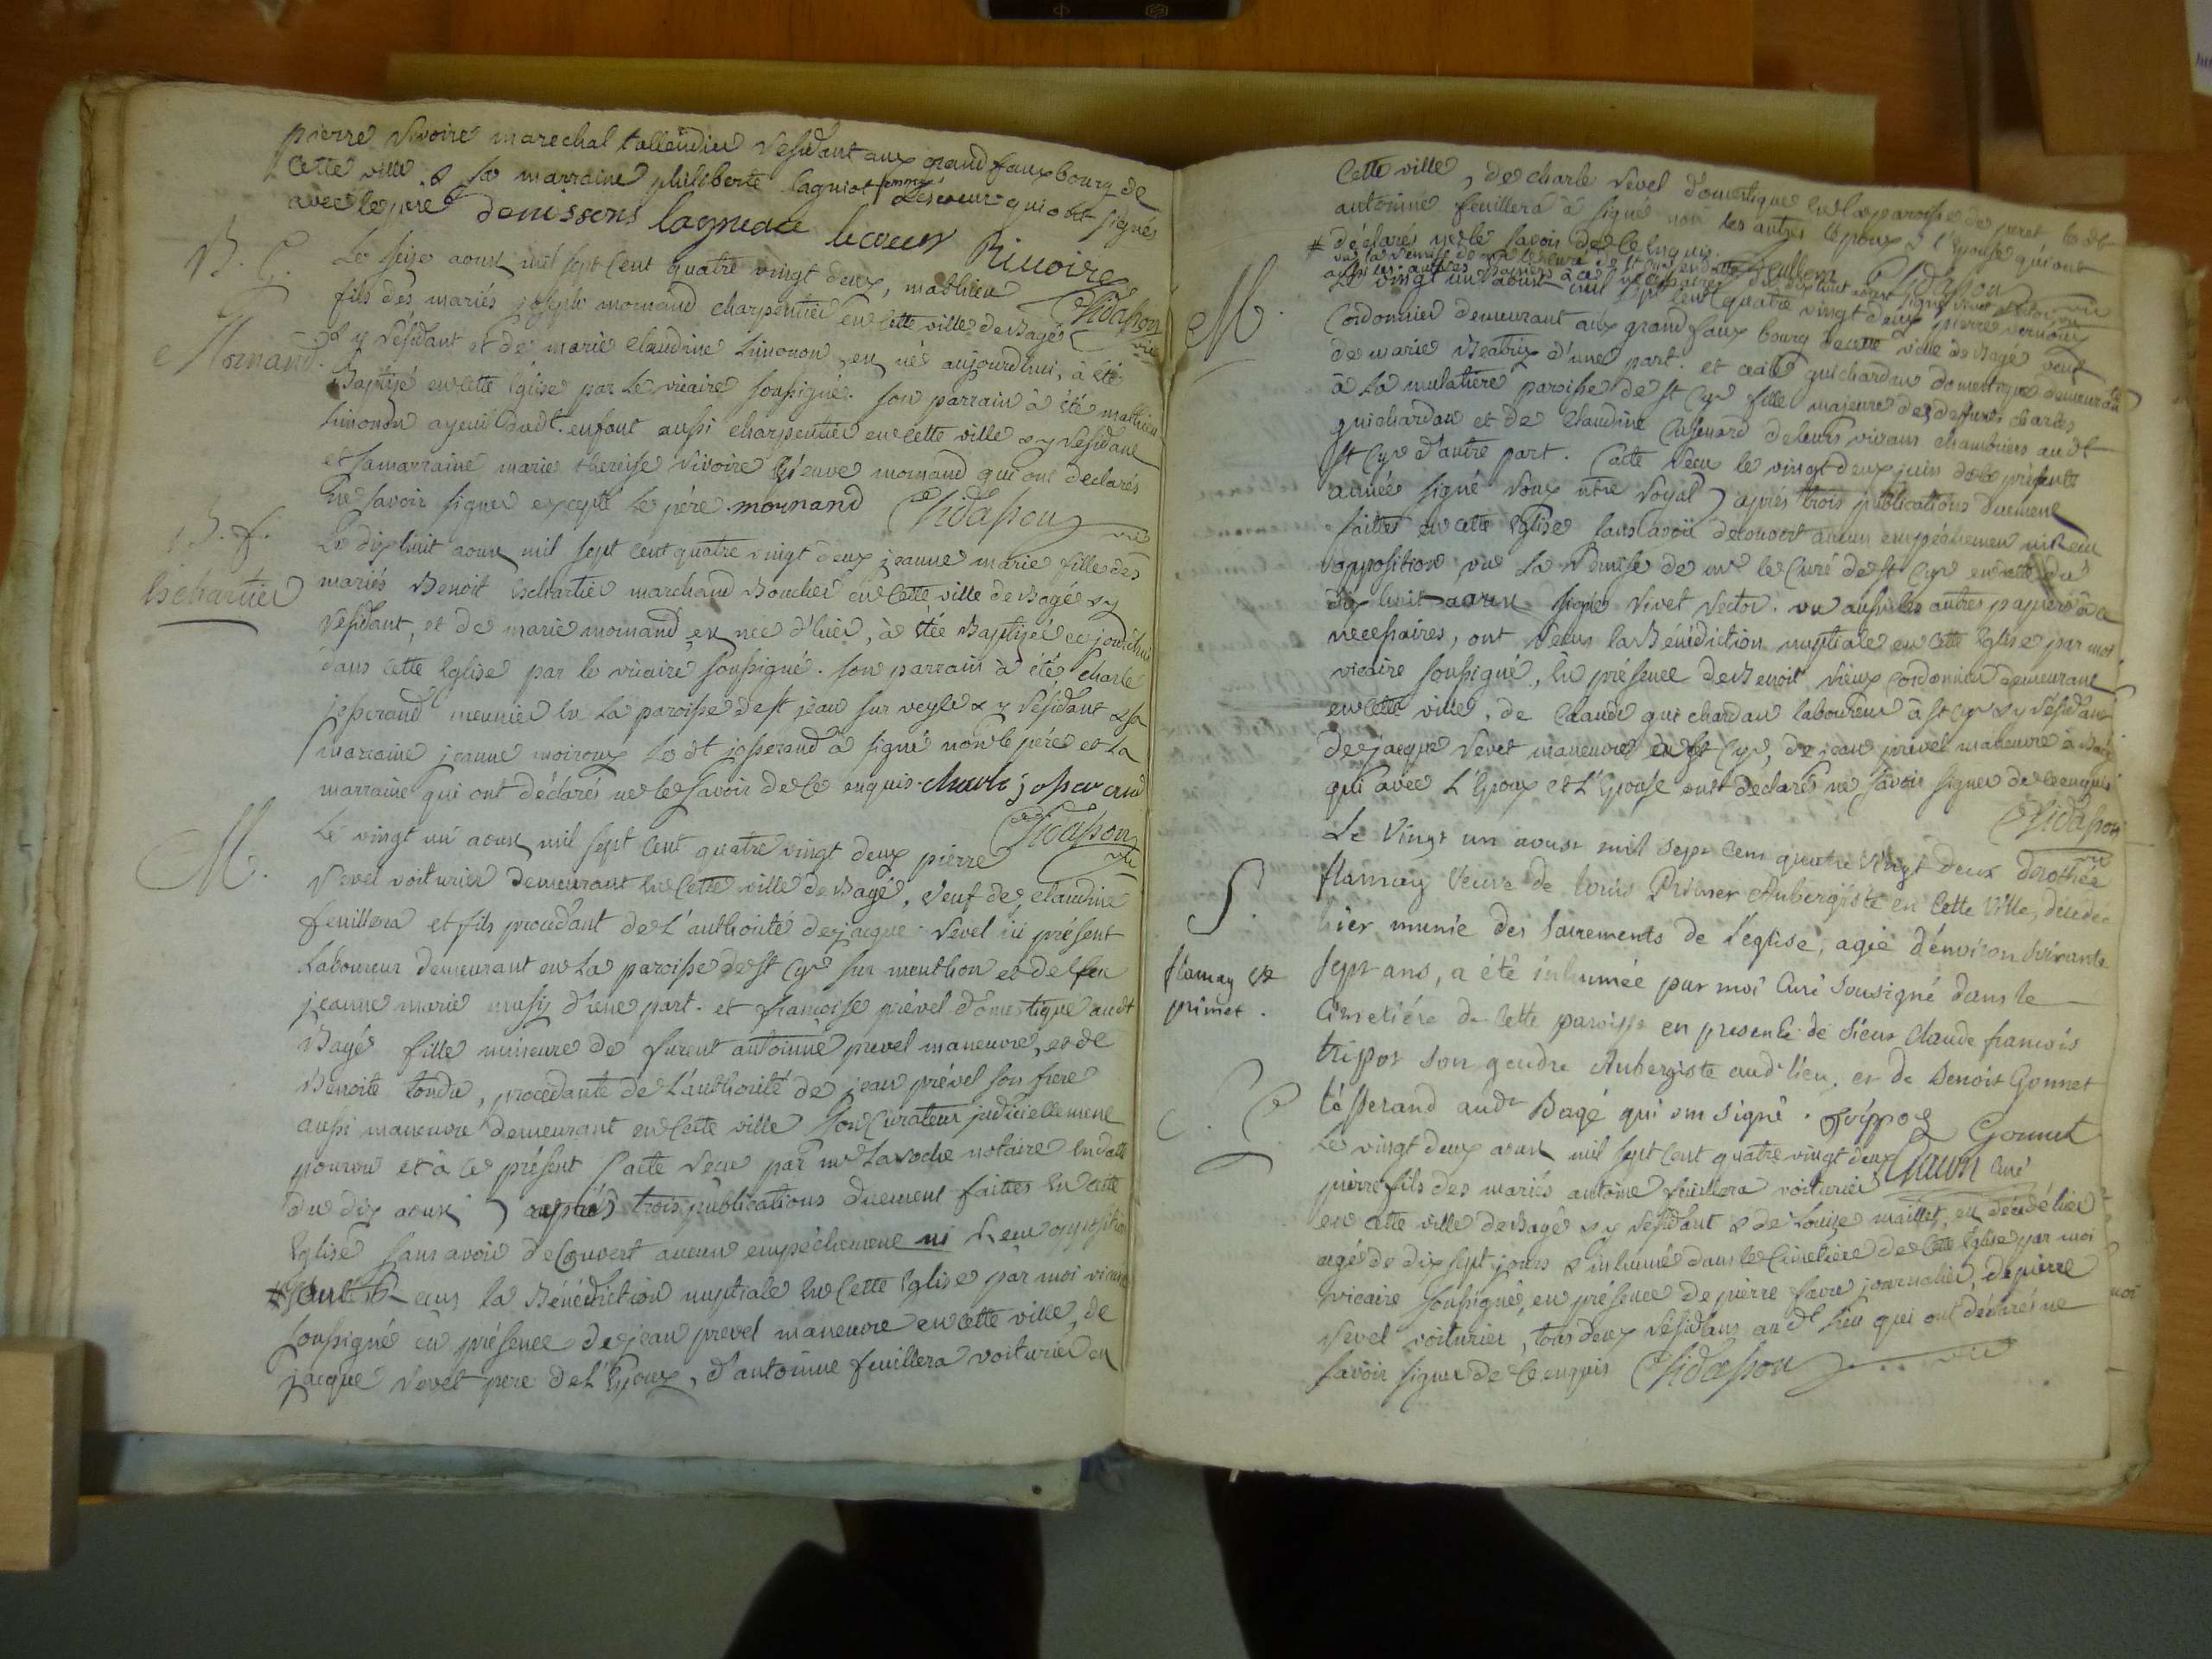 pierre rivoire marechal tallendier résidant aux grand fauxbourg de
cette ville, & sa marraine philiberte lagniot femme Lecoeur qui ont signés
avec le père denissons lagniot lecoeur Rivoire
Chidasson vic
B. G. Le seize aoust mil sept cent quatre vingt deux, mathieu
fils des mariés joseph mornand charpentier en cette ville de Bagé
Mornand. & y résidant et de marie claudine Limonon, en né aujourdhui, à été
Baptisé en cette Eglise par le vicaire soussigné. son parrain à été mathieu
Limonon ayeuil dudt. enfant aussi charpentier en cette ville & y résidant
et sa marraine marie therese rivoire veuve mornand qui ont declarés
ne savoir signer excepté le père. mornand Chidasson vic
B. f. Le dix huit aoust mil sept cent quatre vingt deux jeanne marie fille des
Lechartier mariés Benoit Lechartié marchand Boucher en cette ville de Bagé & y
résidant, et de marie mornand, en née d'hier, à étée Baptisée ce jourdhui
dans cette Eglise par le vicaire soussigné. son parrain à été charle
josserand meunier en la paroisse de st jean sur veyle & y résidant & sa
marraine jeanne moiroux le dt josserand à signé non le père et la
marraine qui ont déclarés ne le savoir de ce enquis. charle josserand
Chidasson vic
M. Le vingt un aoust mil sept cent quatre vingt deux pierre
revel voiturier demeurant en cette ville de Bagé, veuf de claudine
feuillera et fils procédant de L'authorité de jacque revel ici présent
Laboureur demeurant en La paroisse de st Cyr sur menthon et de feu
jeanne marie musy d'une part. et françoise prével domestique audt
Bagé fille mineure de furent antoinne prevel maneuvre, et de
Benoite tondu, procédante de L'authorité de jean prével son frere
aussi maneuvre demeurant en cette ville son Curateur judiciellement
pourvu et à ce présent (acte reçu par me Laroche notaire en datte
du dix aoust) après trois publications duement faittes en cette
Eglise sans avoir decouvert aucun empêchement ni reçu opposition
# ont reçus la Bénédiction nuptiale en cette Eglise par moi vicaire
soussigné en présence de jean prevel maneuvre en cette ville, de
jacque revel pere de L'Epoux, d'antoinne feuillera voiturier en
cette ville, de charle revel domestique en la paroisse de peret le dt
antoinne feuillera à signé non les autres l'epoux & l'Epouse qui ont
déclarés ne le savoir de ce enquis. feuillera Chidasson vic
# vue la remise de mr le curé de st Cyr en datte du dix huit aoust signé rivet rector vu
aussi les autres papiers à ce necessaires
M. Le vingt un aoust mil sept cent quatre vingt deux pierre vernoux
Cordonnier demeurant aux grand faux bourg de cette ville de Bagé veuf
de marie Beatrix d'une part. et guichardan domestique demeurante
à La mulatiere paroisse de st Cyr fille majeure des deffunts charles
guichardan et de claudine de leurs vivans chambriers audt
st Cyr d'autre part. (acte reçu le vingt deux juin de la présente
année signé roux ntre royal) après trois publications duement
faittes en cette Eglise sans avoir decouvert aucun empêchement ni reçu
opposition, vu la remise de mr le Curé de st Cyr en datte du
dix huit aoust signé rivet rector. vu aussi les autres papiers à ce
necessaires, ont reçus la Bénédiction nuptiale en cette Eglise par moi
vicaire soussigné, en présence de Benoit vieux Cordonnier demeurant
en cette ville, de claude guichardan laboureur à st Cyr & y résidant
de jacque revel maneuvre en st Cyr, de jean prevel maneuvre à Bagé
qui avec L'Epoux et L'Epouse ont declarés ne savoir signer de ce enquis
Chidasson vic
S. Le Vingt un aoust mil sept cent quatre vingt deux dorothée
flamay veuve de louis Primet Aubergiste en cette Ville, décédée
hier munie des sacrements de l'eglise, agée d'environ soixante
flamay ve primet. sept ans, a été inhumée par moi Curé sousigné dans le
Cimetiére de cette paroisse en presence de sieur Claude françois
trippoz son gendre Aubergiste aud lieu, et de Benoit Gonnet
tisserand audt Bagé qui ont signé. trippoz Gonnet
curé
Le vingt deux aoust mil sept cent quatre vingt deux
pierre fils des mariés antoine feuillera voiturier
en cette ville de Bagé & y résidant & de Louise maillet, en décédé hier
agé de dix sept jours & inhumé dans le Cimetiére de cette Eglise par moi
vicaire soussigné, en présence de pierre favre journalier, de pierre
revel voiturier, tous deux résidans au dt lieu qui ont déclarés ne
savoir signer de ce enquis Chidasson vic